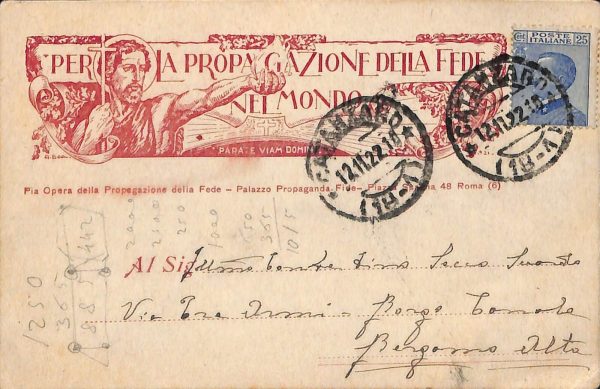 PER LA PROPAGAZIONE DELLA FEDE
NEL MONDO
PARATE VIAM DOMINI
POSTE ITALIANE
25
CATANZARO
12.11.22.18
(18-11)
CATANZARO
12.11.22.18
(18-11)
Pia Opera della Propagazione della Fede – Palazzo Propaganda Fide – Piazza 48 Roma (6)
2000
2500
250
1000
650
365
1015
1250
365
885
442
Al Sig.
Secco Suardo
Via Tre Armi - Borgo Canale
Bergamo Alta